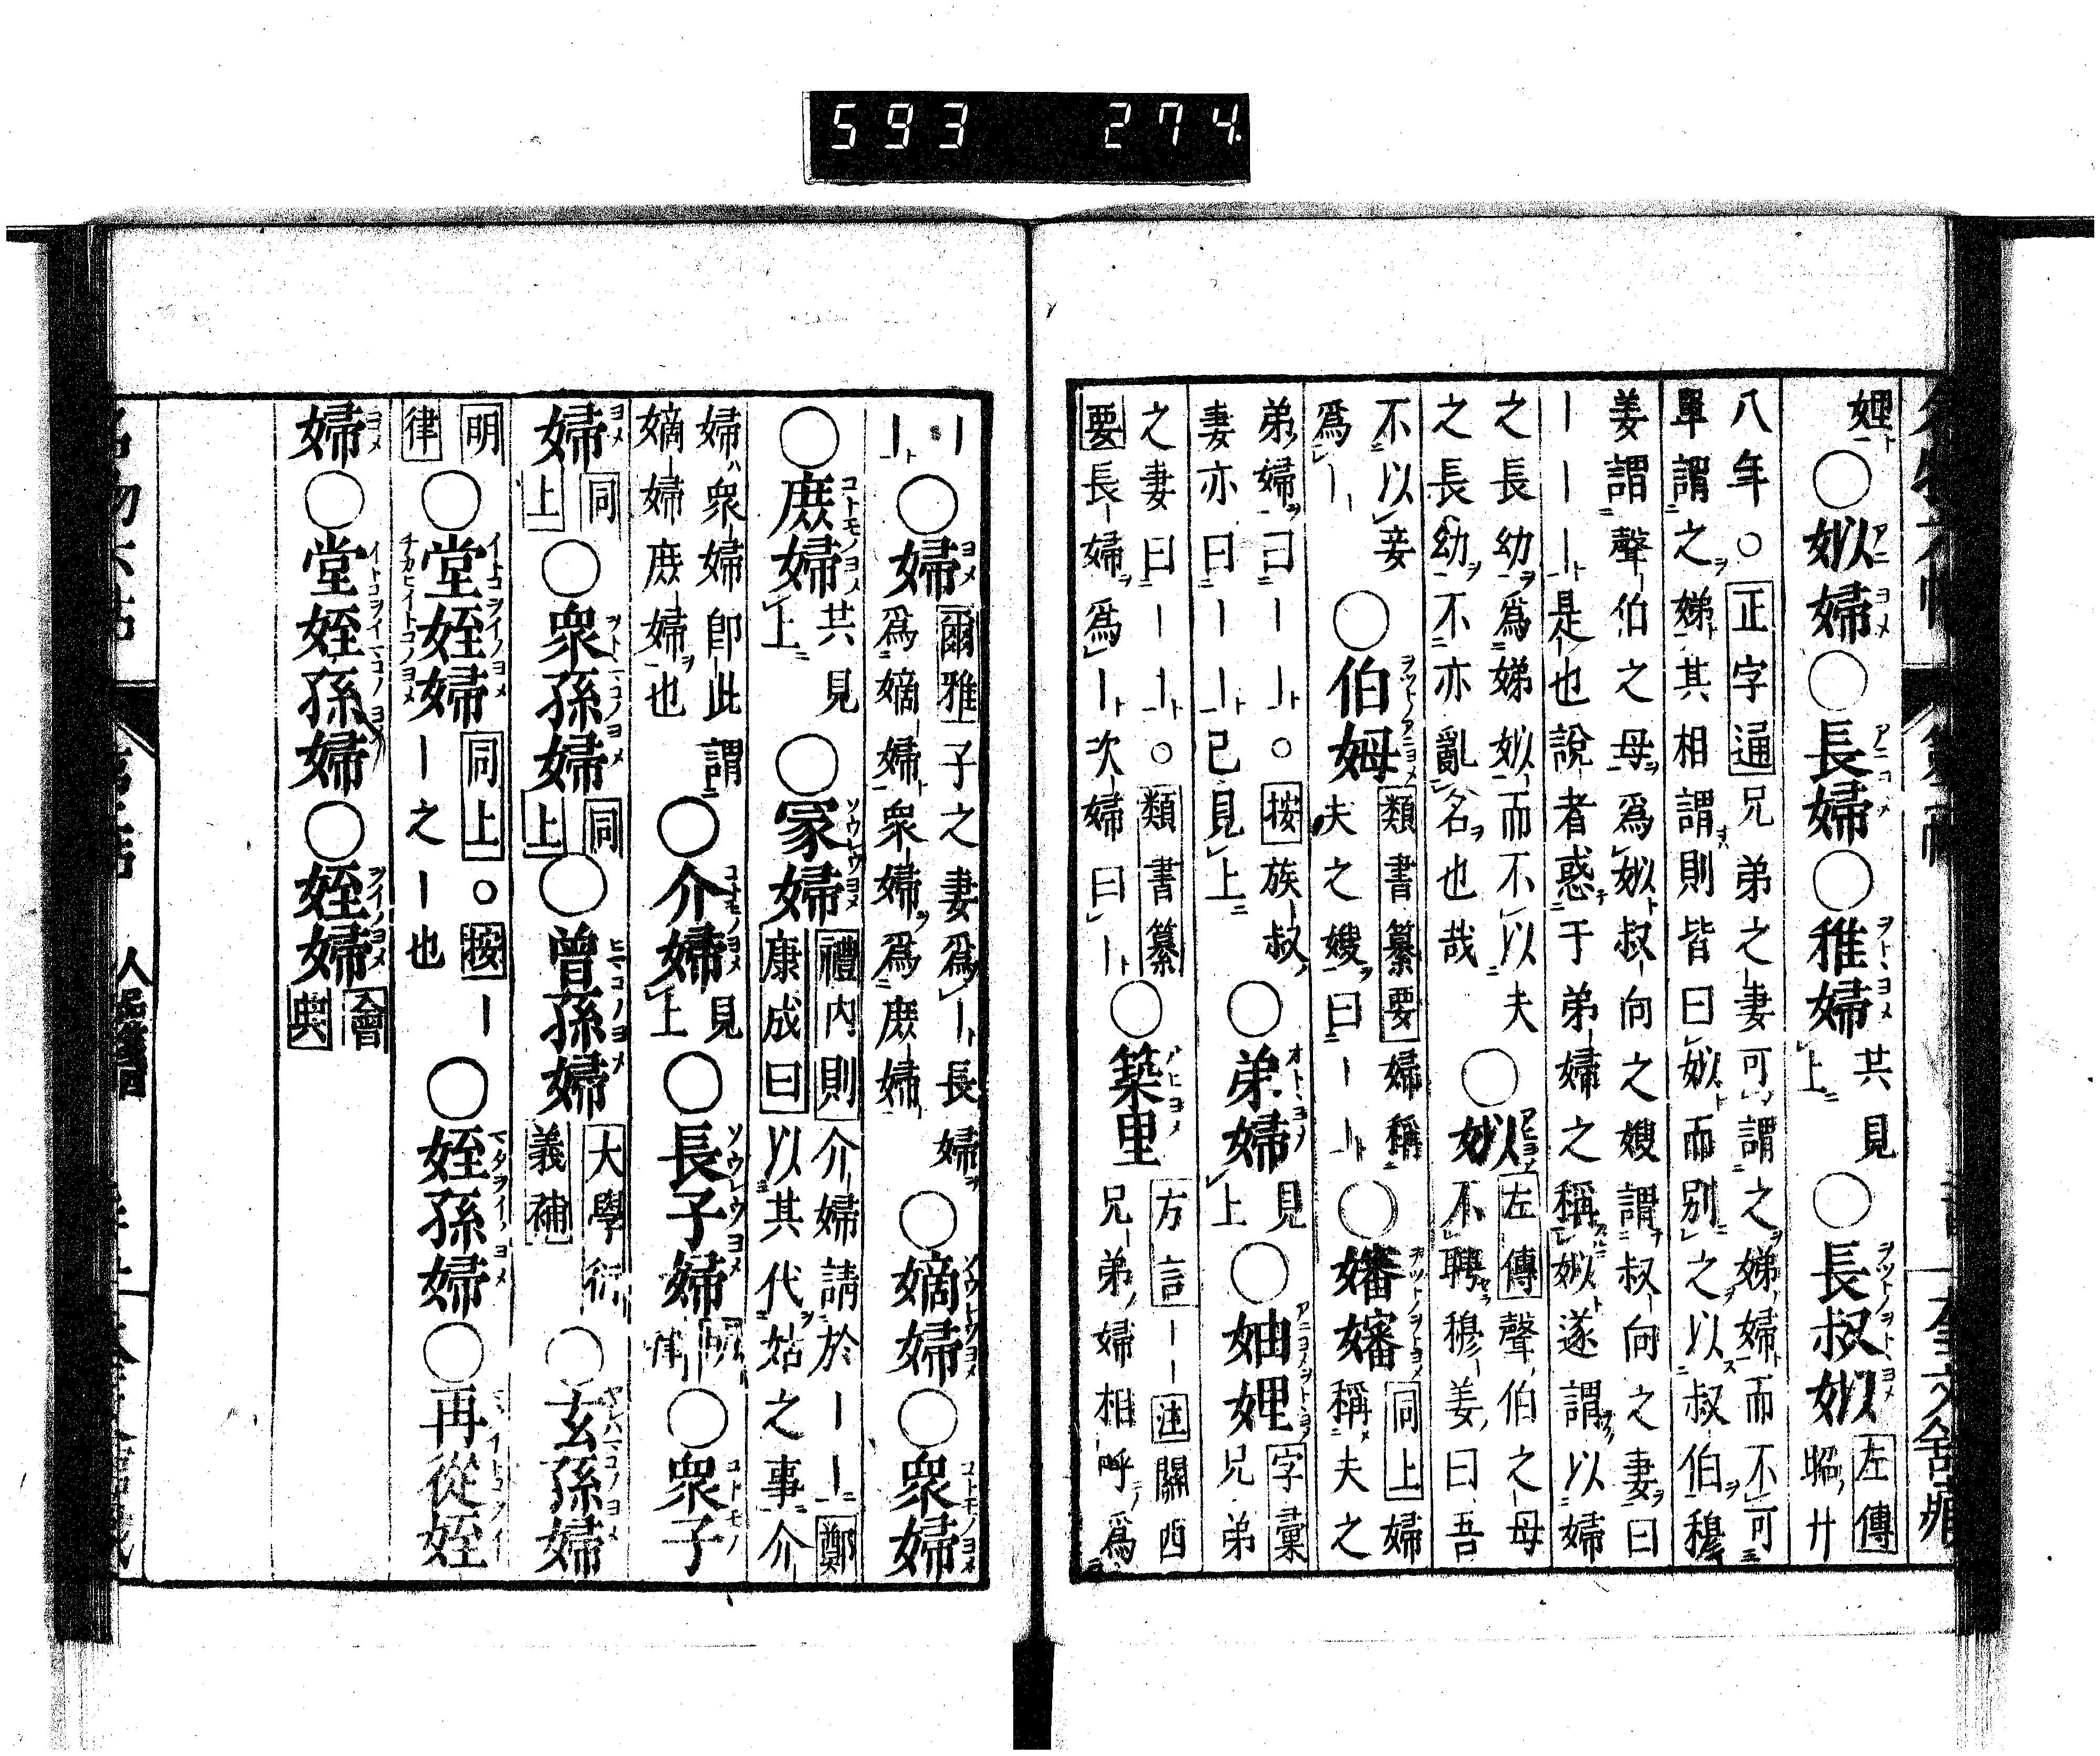 593 274
娌○姒婦○長婦○稚婦共見上○長叔姒左傳昭廿
八年○正字通兄弟之妻可謂之娣婦而不可
單謂之娣其相謂則皆曰姒而別之以叔伯穆
姜謂聲伯之母爲姒叔向之嫂謂叔向之妻曰
丨丨丨是也說者惑于弟婦之稱姒遂謂以婦
之長幼爲娣姒而不以夫
之長幼不亦亂名也哉
○姒左傳聲伯之母不聘穆姜曰吾
不以妾爲丨○伯姆類書纂要婦稱夫之嫂曰丨丨○嬸嬸同上婦稱夫之
弟婦曰丨丨○按族叔妻亦曰丨丨已見上○弟婦見上○妯娌字彙兄弟
之妻曰丨丨○類書纂要長婦爲丨次婦曰丨○築里方言丨丨注關西兄弟婦相呼爲
丨丨○婦爾雅子之妻爲丨長婦爲嫡婦衆婦爲庶婦○嫡婦○衆婦
○庶婦共見上○冢婦禮內則介婦請於丨丨鄭康成曰以其代姑之事介
婦衆婦卽此謂嫡婦庶婦也○介婦見上○長子婦明律○衆子
婦同上○衆孫婦同上○曾孫婦大學衍義補○玄孫婦
明律○堂姪婦同上○按丨丨之丨也○姪孫婦○再從姪
婦○堂姪孫婦○姪婦會典